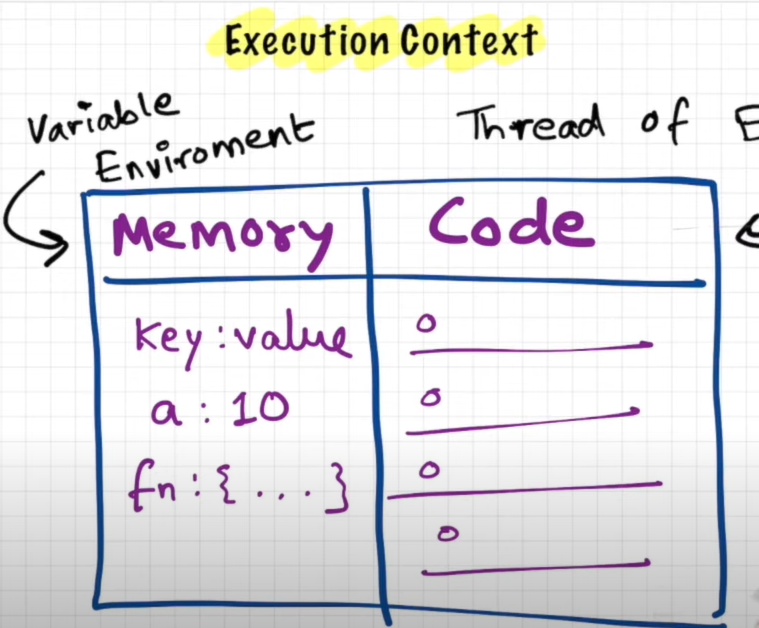 Execution Context
Variable
Enviroment
Thread of E
Memory
Code
key : value
a : 10
fn : { ... }